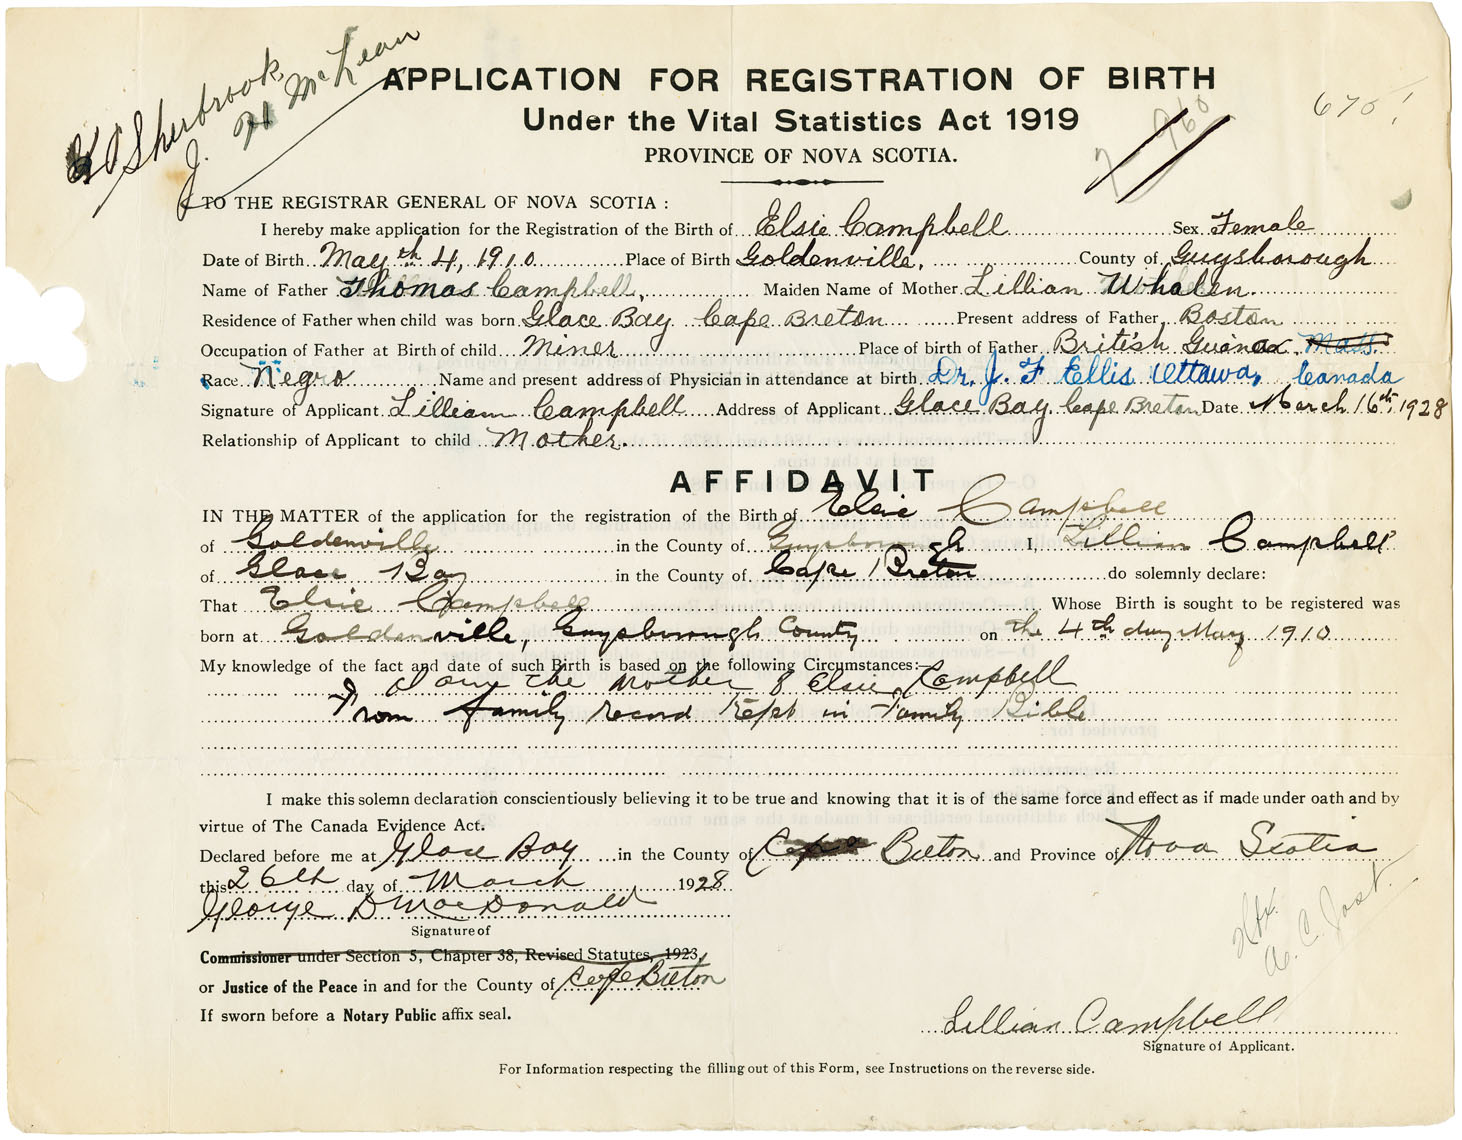 Sherbrook
J. H McLean
APPLICATION FOR REGISTRATION OF BIRTH
Under the Vital Statistics Act 1919
675!
960
PROVINCE OF NOVA SCOTIA.
TO THE REGISTRAR GENERAL OF NOVA SCOTIA :
I hereby make application for the Registration of the Birth of Elsie Campbell Sex Female
Date of Birth May th 4, 1910 Place of Birth Goldenville, County of Guysborough
Name of Father Thomas Campbell, Maiden Name of Mother Lillian Whalen.
Residence of Father when child was born Glace Bay Cape Breton Present address of Father Boston
Occupation of Father at Birth of child Miner Place of birth of Father British Guana Mass.
Race Negro Name and present address of Physician in attendance at birth Dr. J. F Ellis Ottawa, Canada
Signature of Applicant Lilliam Campbell Address of Applicant Glace Bay Cape Breton Date March 16th, 1928
Relationship of Applicant to child Mother.
AFFIDAVIT
IN THE MATTER of the application for the registration of the Birth of Elsie Campbell
of Goldenville in the County of Guysborough I, Lillian Campbell
of Glace Bay in the County of Cape Breton do solemnly declare:
That Elsie Campbell Whose Birth is sought to be registered was
born at Goldenville, Guysborough County on the 4th day May 1910
My knowledge of the fact and date of such Birth is based on the following Circumstances:—
I am the Mother of Elsie Campbell
From family Record Kept in Family Bible
I make this solemn declaration conscientiously believing it to be true and knowing that it is of the same force and effect as if made under oath and by
virtue of The Canada Evidence Act.
Declared before me at Glace Bay in the County of Cape Breton and Province of Nova Scotia
this 26th day of March 1928
George D MacDonald
Signature of
Commissioner under Section 5, Chapter 38, Revised Statutes, 1923,
or Justice of the Peace in and for the County of Cape Breton
If sworn before a Notary Public affix seal.
A. C. Jost.
Lillian Campbell
Signature of Applicant.
For Information respecting the filling out of this Form, see Instructions on the reverse side.